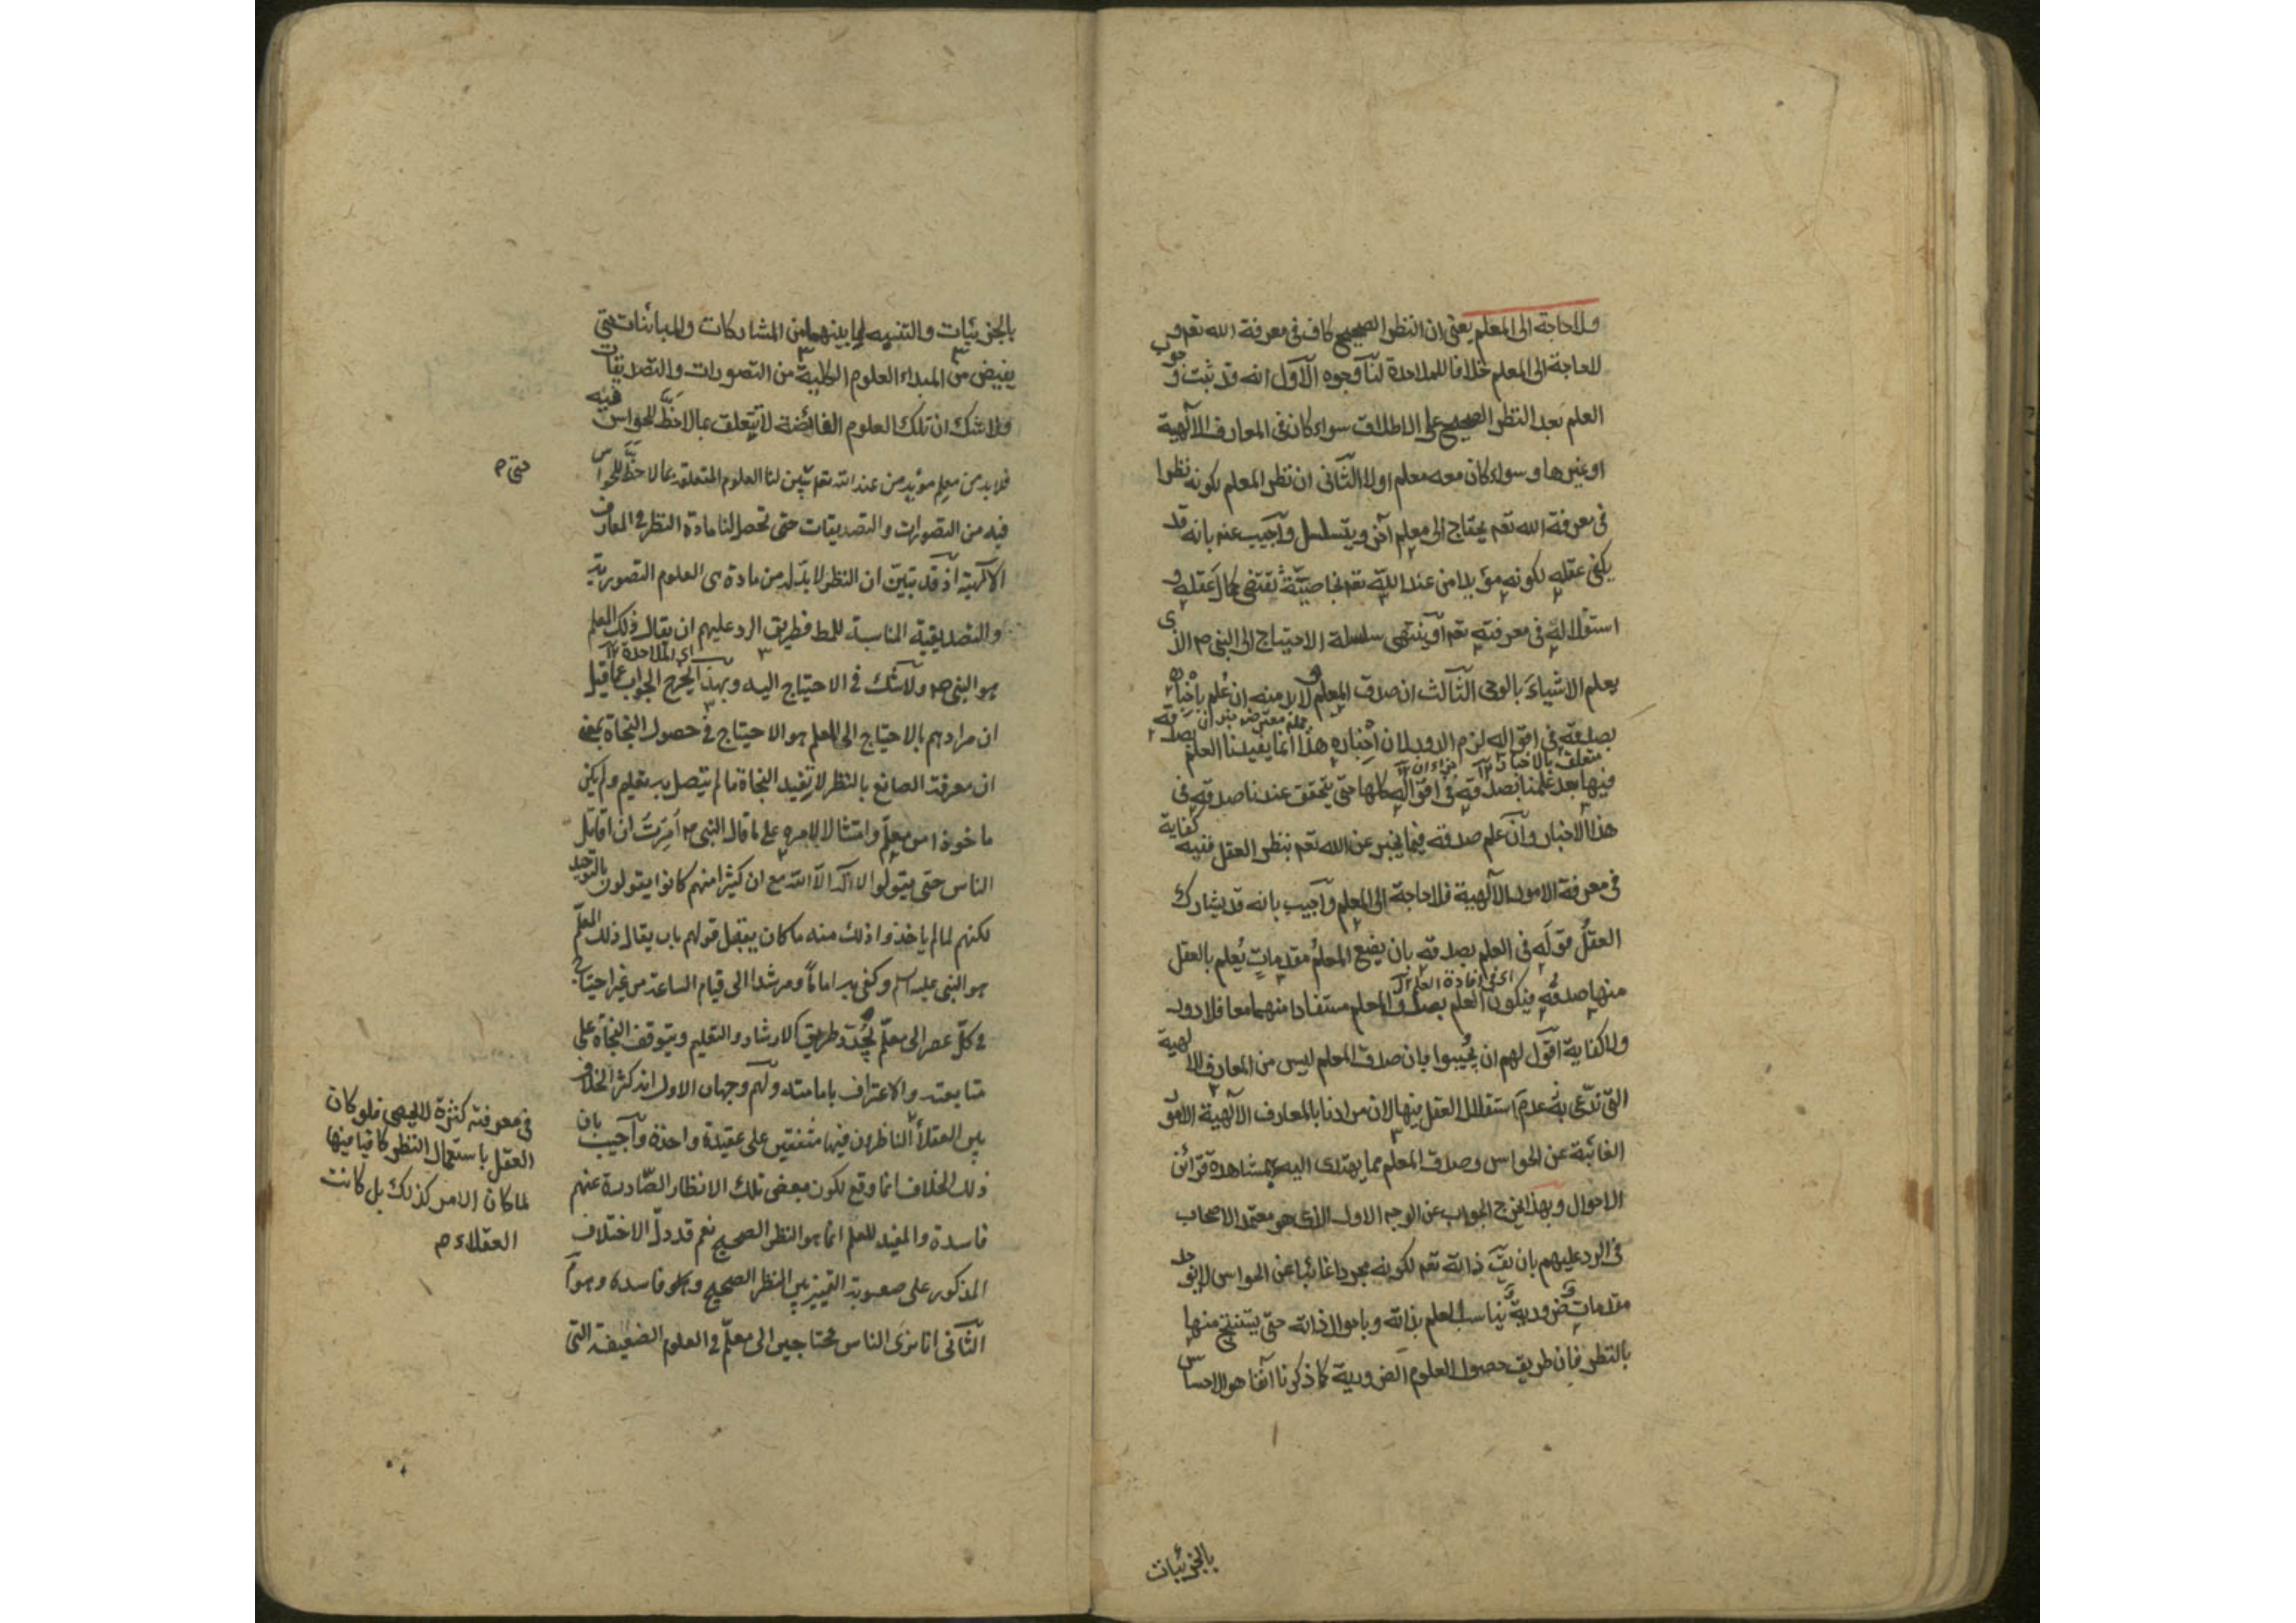 ولا حاجة الى المعلم يعنى ان النظر الصحيح كاف فى معرفة الله تعم و
لا حاجة الى المعلم خلافا للملاحدة لنا وجوه الاول انه قد ثبت وجوب
العلم بعد النظر الصحيح على الاطلاق سواء كان فى المعارف الالهية
او غيرها و سواء كان معه معلم او لا الثانى ان نظر المعلم لكونه نظرا
فى معرفة الله تعم يحتاج الى معلم آخر ويتسلسل واجيب عنه بانه قد
يكفى عقله لكونه مؤيدا من عند الله تعم بخاصية تقتضى كمال عقله و
استقلاله فى معرفته تعم او ينتهى سلسلة الاحتياج الى النبى م الذى
يعلم الاشياء بالوحى الثالث ان صدق المعلم لابد منه ان علم باخباره
بصدقه فى اقواله لزم الدور لان اخباره هذا انما يفيدنا العلم بصدقه
متعلق بالاخبار ١٢
فيها بعد علمنا بصدقه فى اقواله كلها حتى يتحقق عندنا صدقه فى
هذا الاخبار وان علم صدقه فيما يخبر عن الله تعم بنظر العقل ففيه كفاية
فى معرفة الامور الالهية فلا حاجة الى المعلم واجيب بانه قد يشارك
العقل قوله فى العلم بصدقه بان يضع المعلم مقدمات يعلم بالعقل
اى فى افادة العلم ١٢
منها صدقه فيكون العلم بصدق المعلم مستفادا منهما معا فلا دور
ولا كفاية اقول لهم ان يجيبوا بان صدق المعلم ليس من المعارف الالهية
التى ندعى به عدم استقلال العقل فيها لان مرادنا بالمعارف الالهية الامور
الغائبة عن الحواس وصدق المعلم مما يهتدى اليه بمشاهدة قرائن
الاحوال وبهذا يخرج الجواب عن الوجه الاول الذى هو معتمد الاصحاب
فى الرد عليهم بان يق ذاته تعم لكونه مجردا غائبا عن الحواس لا يوجد
مقدمات ضرورية يناسب العلم بذاته وباحوال ذاته حتى يستنتج منها
بالنظر فان طريق حصول العلوم الضرورية كما ذكرنا آنفا هو الاحساس
بالجزئيات
بالجزئيات والتنبيه لما بينهما من المشاركات والمباينات حتى
يفيض من المبداء العلوم الكلية من التصورات والتصديقات
ولا شك ان تلك العلوم الفائضة لا تتعلق بما لاحظ للحواس فيه
فلابد من معلم مؤيد من عند الله تعم يبين لنا العلوم المتعلقة بما لاحظ للحواس
فيه من التصورات والتصديقات حتى تحصل لنا مادة النظر فى المعارف
الالهية اذ قد تبين ان النظر لابد له من مادة هى العلوم التصورية
والتصديقية المناسبة للمط فطريق الرد عليهم ان يقال ذلك المعلم
اى الملاحدة ١٢
هو النبى ص ولا شك فى الاحتياج اليه وبهذا يخرج الجواب عما قيل
ان مرادهم بالاحتياج الى المعلم هو الاحتياج فى حصول النجاة بمعنى
ان معرفة الصانع بالنظر لا تفيد النجاة ما لم يتصل به تعليم ولم يكن
ماخوذا من معلم وامتثالا لامره على ما قال النبى ص امرت ان اقاتل
الناس حتى يقولوا لا اله الا الله مع ان كثيرا منهم كانوا يقولون بالتوحيد
لكنهم لما لم ياخذوا ذلك منه ما كان يقبل قولهم بان يقال ذلك المعلم
هو النبى عليه السلم وكفى به اماما ومرشدا الى قيام الساعة من غير احتياج
فى كل عصر الى معلم يجدد طريق الارشاد والتعليم ويتوقف النجاة على
متابعته والاعتراف بامامته ولهم وجهان الاول انه كثر الخلاف
بين العقلاء الناظرون فيها متفقين على عقيدة واحدة واجيب بان
ذلك الخلاف انما وقع لكون بعض تلك الانظار الصادرة عنهم
فاسدة والمفيد للعلم انما هو النظر الصحيح نعم قد دل الاختلاف
المذكور على صعوبة التمييز بين النظر الصحيح و فاسده وهو م
الثانى انا نرى الناس محتاجين الى معلم فى العلوم الضعيفة التى
حتى م
فى معرفته كثرة لا يحصى فلو كان
العقل باستعمال النظر كافيا فيها
لما كان الامر كذلك بل كانت
العقلاء م